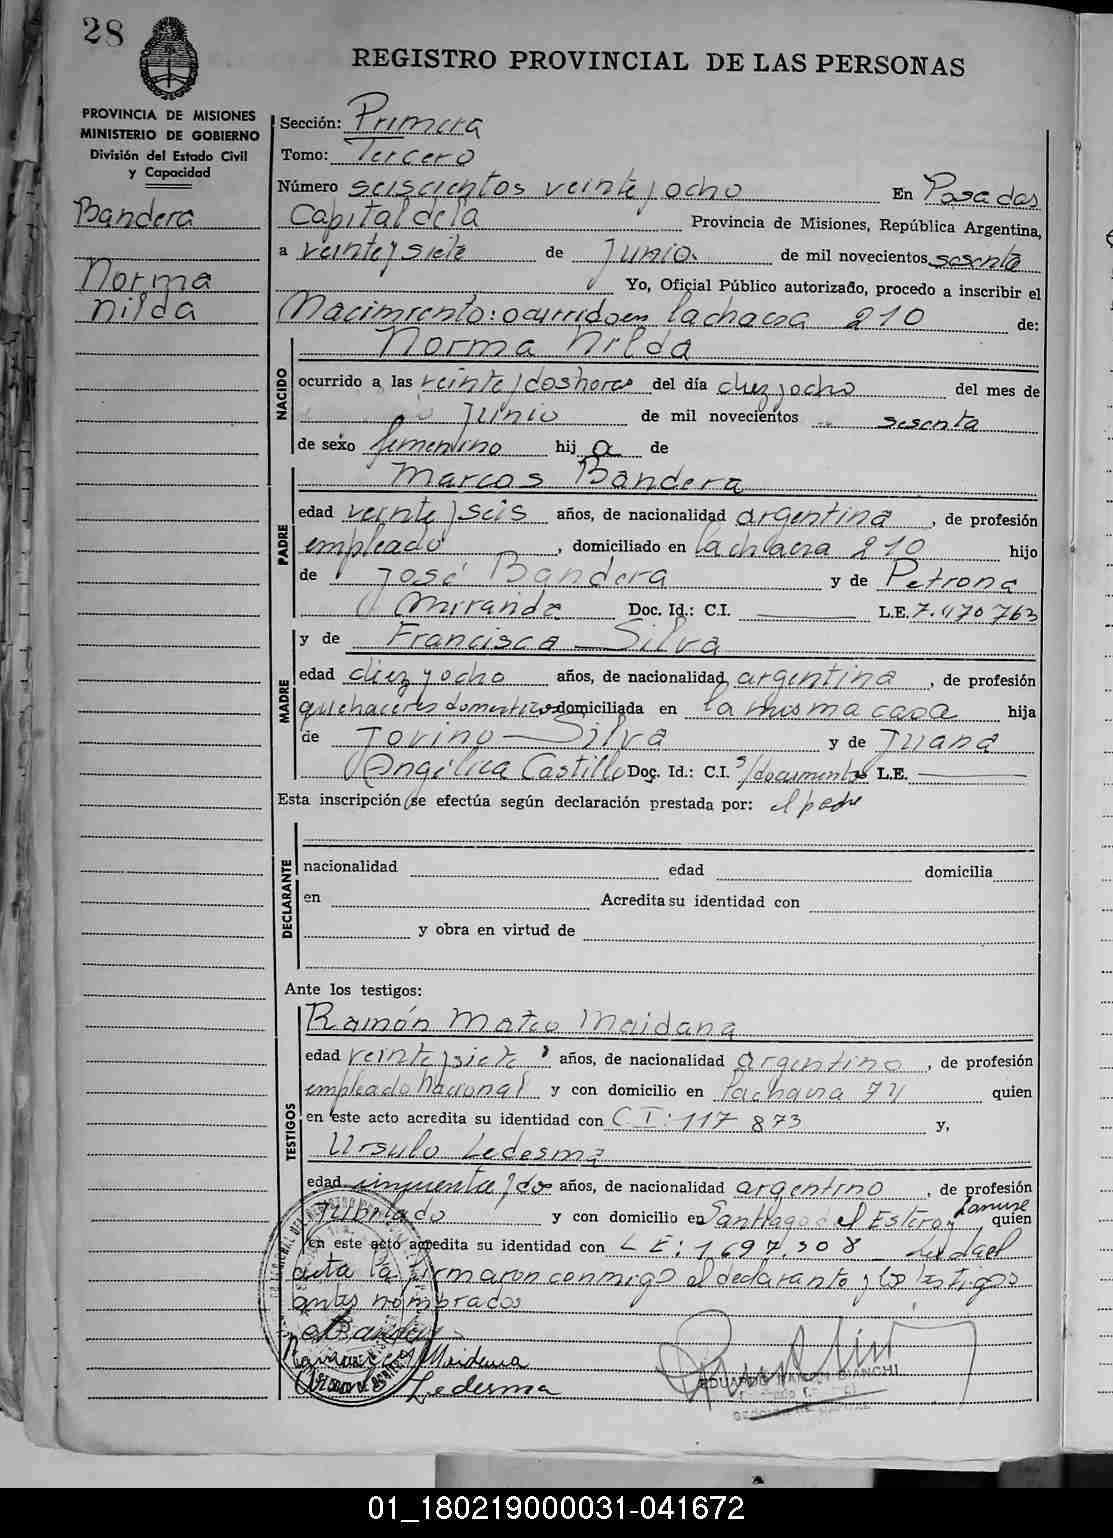 28
REGISTRO PROVINCIAL DE LAS PERSONAS
PROVINCIA DE MISIONES
MINISTERIO DE GOBIERNO
División del Estado Civil
y Capacidad
Bandera
Norma
Nilda
Sección: Primera
Tomo: Tercero
Número seiscientos veinte y ocho En Posadas
Capital de la Provincia de Misiones, República Argentina,
a veinte y siete de Junio. de mil novecientos sesenta
Yo, Oficial Público autorizado, procedo a inscribir el
Nacimiento: ocurrido en la chacra 210 de:
NACIDO
Norma Nilda
ocurrido a las veinte y dos horas del día diez y ocho del mes de
Junio de mil novecientos sesenta
de sexo femenino hij a de
PADRE
Marcos Bandera
edad veinte y seis años, de nacionalidad argentina, de profesión
empleado, domiciliado en la chacra 210 hijo
de José Bandera y de Petrona
Miranda Doc. Id.: C.I. L.E. 7.470763
MADRE
y de Francisca Silva
edad diez y ocho años, de nacionalidad argentina, de profesión
quehaceres domesticos domiciliada en la misma casa hija
de Silva y de Juana
Angélica Castillo Doc. Id.: C.I. s/documentos L.E.
Esta inscripción se efectúa según declaración prestada por: el padre
DECLARANTE
nacionalidad edad domicilia
en Acredita su identidad con
y obra en virtud de
Ante los testigos:
TESTIGOS
Ramón Mateo Maidana
edad veinte y siete años, de nacionalidad argentino, de profesión
empleado nacional y con domicilio en la chacra 74 quien
en este acto acredita su identidad con C.I: 117 873 y,
Ursulo Ledesma
edad cincuenta y dos años, de nacionalidad argentino, de profesión
Jubilado y con domicilio en Santiago del Estero y Lanuse quien
en este acto acredita su identidad con L E: 1.697.308 Leida el
acta la firmaron conmigo el declarante y los testigos
antes nombrados
Maidana
Ledesma
BIANCHI
01_180219000031-041672